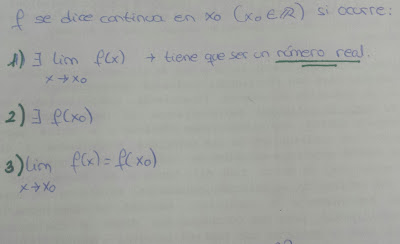 f se dice continua en x₀ (x₀ ∈ ℝ) si ocurre:
1) ∃ lim f(x) → tiene que ser un número real.
x→x₀
2) ∃ f(x₀)
3) lim f(x) = f(x₀)
x→x₀